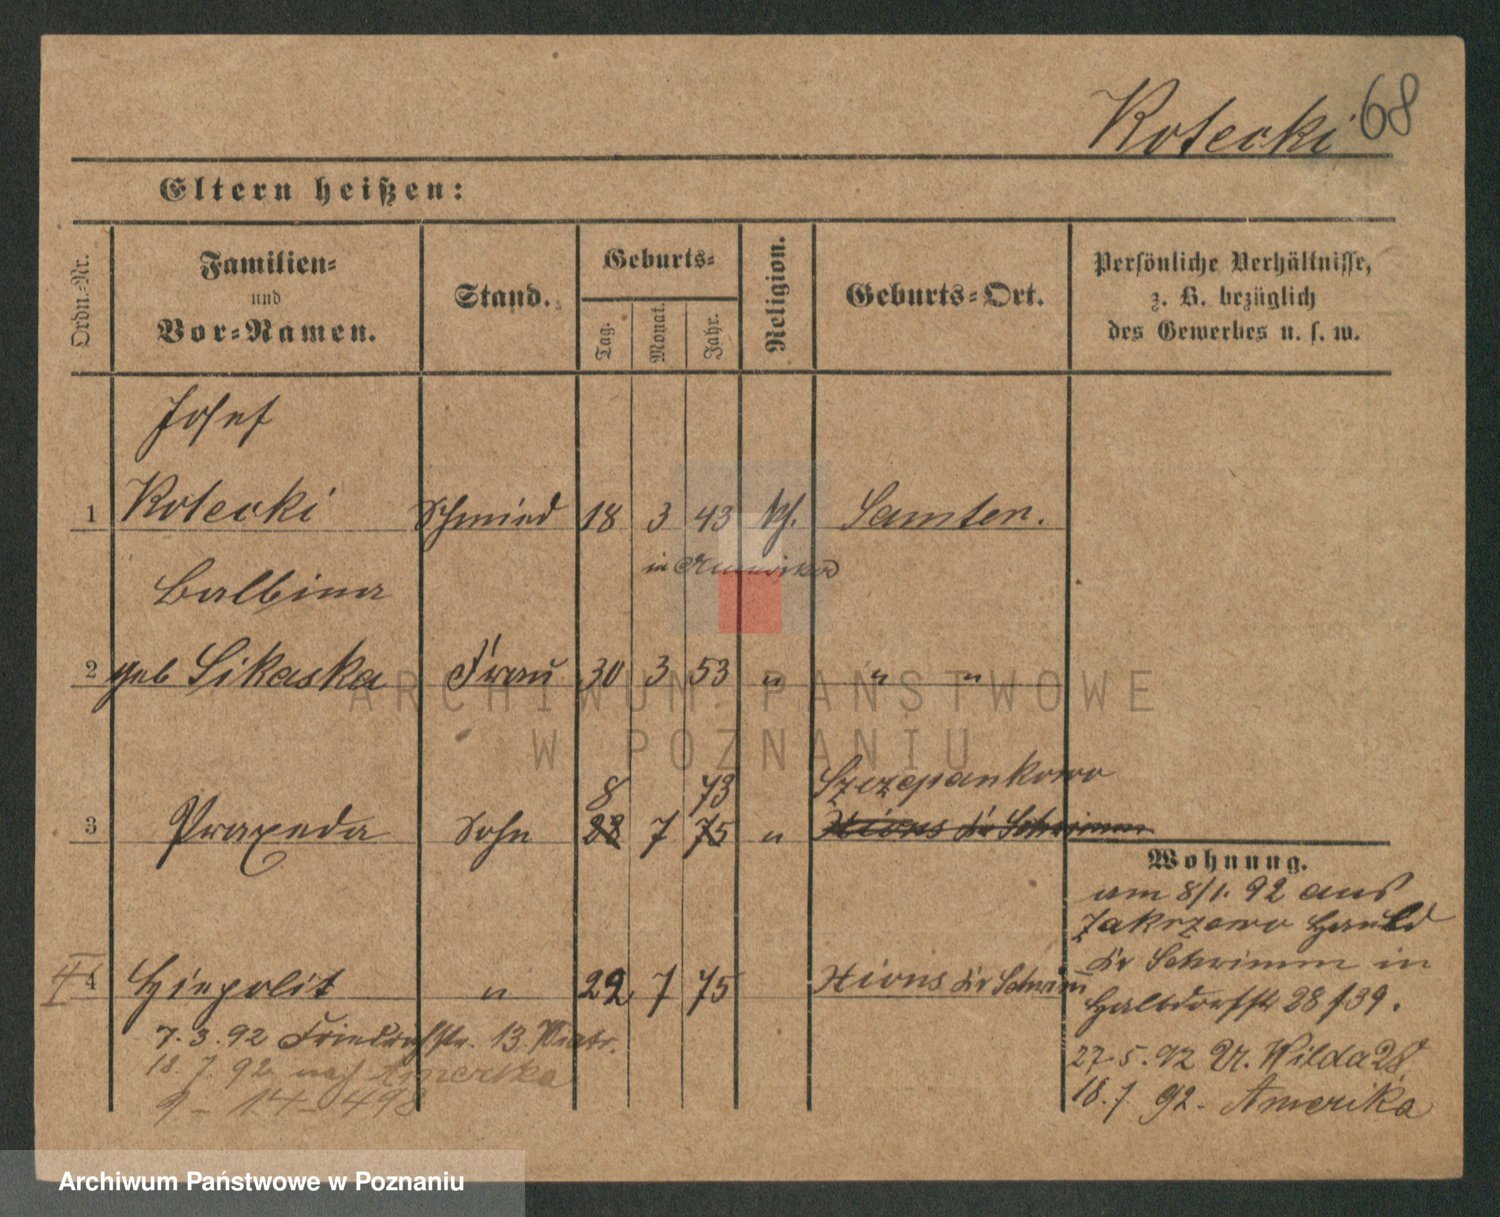 Kotecki 68
Eltern heißen:
Ordn.-Nr.
Familien-
und
Vor-Namen.
Stand.
Geburts-
Tag.
Monat.
Jahr.
Religion.
Geburts-Ort.
Persönliche Verhältnisse,
z. B. bezüglich
des Gewerbes u. s. w.
Josef
1 Kotecki Schmied 18 3 43 kth. Samter.
in Amerika
Balbina
2 geb Sikaska Frau 30 3 53 " " "
ARCHIWUM PAŃSTWOWE
W POZNANIU
8 73 Szczepankowo
3 Praxeda Sohn 23 7 75 " Xions Kr Schrimm
Wohnung.
am 8/1. 92 aus
Zakrzewo Hauld
Kr Schrimm in
Halbdorfstr 28/39.
4 Hiepolit " 22 7 75 Xions Kr Schrimm
7. 3. 92 Friedrichstr. 13.
27. 5. 92 U. Wilda 28
18. 7. 92 nach Amerika
18. 7. 92. Amerika
9 - 14 - 498
Archiwum Państwowe w Poznaniu